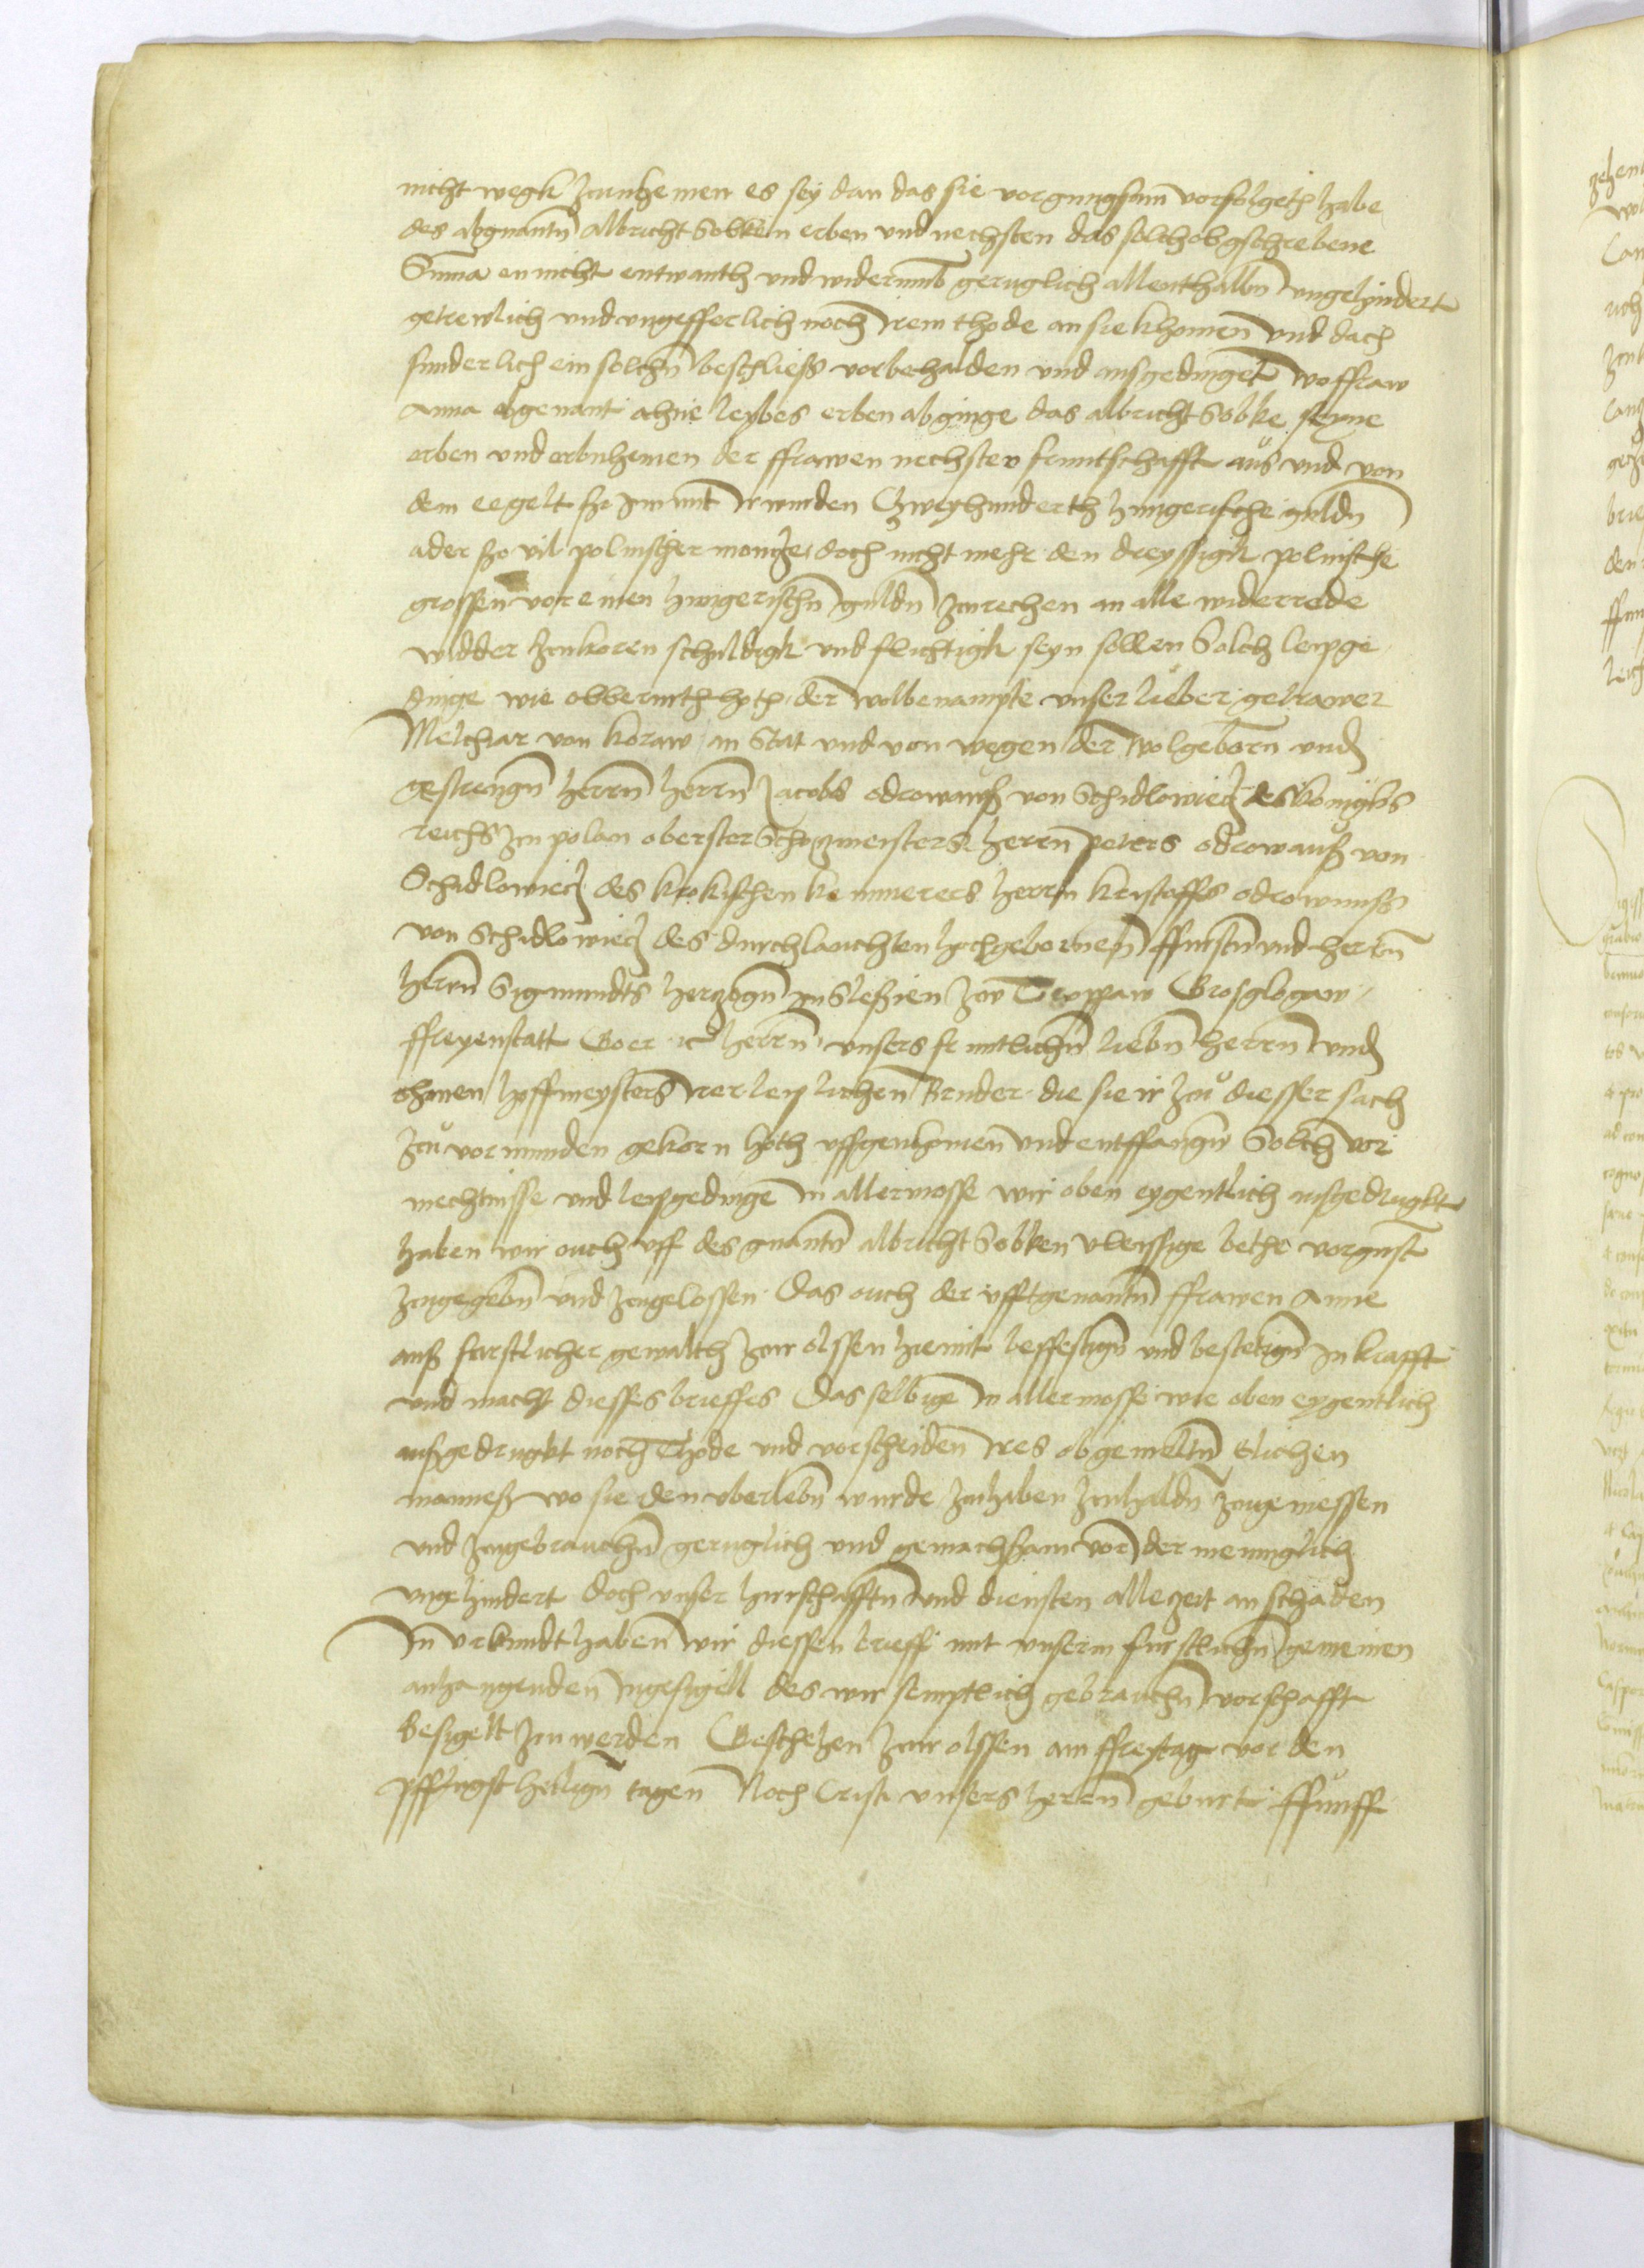 nicht wegk zunhemen es sey dan das sie vorgnugsam vorsolgeth habe
des abgnantn albricht Sobken erben und nechsten das solch obgschrebene
Suma en nicht entwanth und widerumb geruglich allenthalbn ungehyndert
getrewlich und ungefferlich noch irem thode an sie khomen und dach
sunderlich ein solchn beschliess vorbehalden und ausgedinget wo ffraw
Anna obgenant ahne leybes erben abginge das albricht Sobke seyne
erben und erbnhemen der ffrawen nechster fruntschafft aus und von
dem eegelt szo im mit ir wurden Czweyhunderth hungerische guldn
ader szo vil polnischer moncze doch nicht mehr den dreyssigk polnische
grossen vor einen hungerischn guldn zurechen an alle widerrede
widder zukoren schuldigk und flichtigk seyn sollen Solch leipge
dinge wie obberurth hoth der wolbenampte unser lieber getrawer
Melchiar von koraw an stat und von wegen der wolgeborn und
gestrengn herrn herrn Jacobs odrowansz von Schidlowiecz des konigks
reichs zu polan oberster Schatzmeisters herrn peters odrowansz von
Schidlowiecz des krokischen kemmerers herrn kristoffs odrowunsz
von Schidlowiecz des durchlauchten hochgebornen ffursten und herrn
herrn Sigmundts herzogn in Slesien zw Troppaw Grosglogaw
ffreyenstatt Goer ic herrn unsers fruntlichn liebn herrn und
ohmen hoffmeysters irer leiplichen Bruder die sie ir zu diesser sach
zu vormunden gekorn hoth uffgenhomen und entffangn Solch vor
mechtnisse und leipgedinge in allermosse wir oben eygentlich ausgedrugkt
haben wir ouch uff des gnantn albricht Sobken vleissige bethe vorgunst
zugegebn und zugelossen Das ouch der ufftgenantn ffrawen Anne
ausz furstlicher gewalth zur olssen hiemit beffestign und bestetign in krafft
und macht diesses brieffes Das selbige in allermosse wie oben eygentlich
ausgedrugkt noch Thode und vorscheiden ires obgemeltn Elichen
mannesz wo sie den uberlebn wurde zuhaben zuhaldn zugeniessen
und zugebrauchn geruglich und gemachsam vor ider meniglich
ungehindert doch unser hirschafftn und diensten allezeit an schaden
In urkundt haben wir diessen brieff mit unserm furstlichn gemeinen
anhangenden ingesigill des wir semptlich gebrauchn vorschafft
besigelt zu werden Geschehen zur olssen am ffreytag vor den
pffingst heilign tagen Noch Cristi unsers herrn geburt ffunff